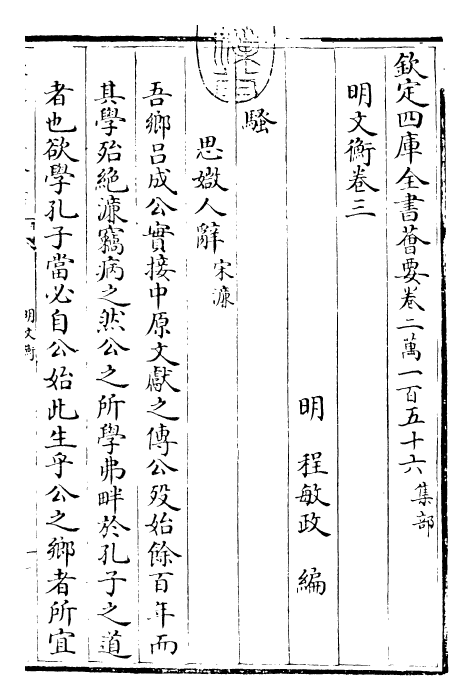 欽定四庫全書薈要卷二萬一百五十六 集部
明文衡卷三
明 程敏政 編
騷
思媺人辭 宋濂
吾鄉呂成公實接中原文獻之傳公歿始餘百年而
其學殆絶濂竊病之然公之所學弗畔於孔子之道
者也欲學孔子當必自公始此生乎公之鄉者所宜
明文衡